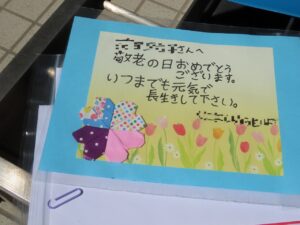 さんへ
敬老の日おめでとう
ございます。
いつまでも元気で
長生きして下さい。